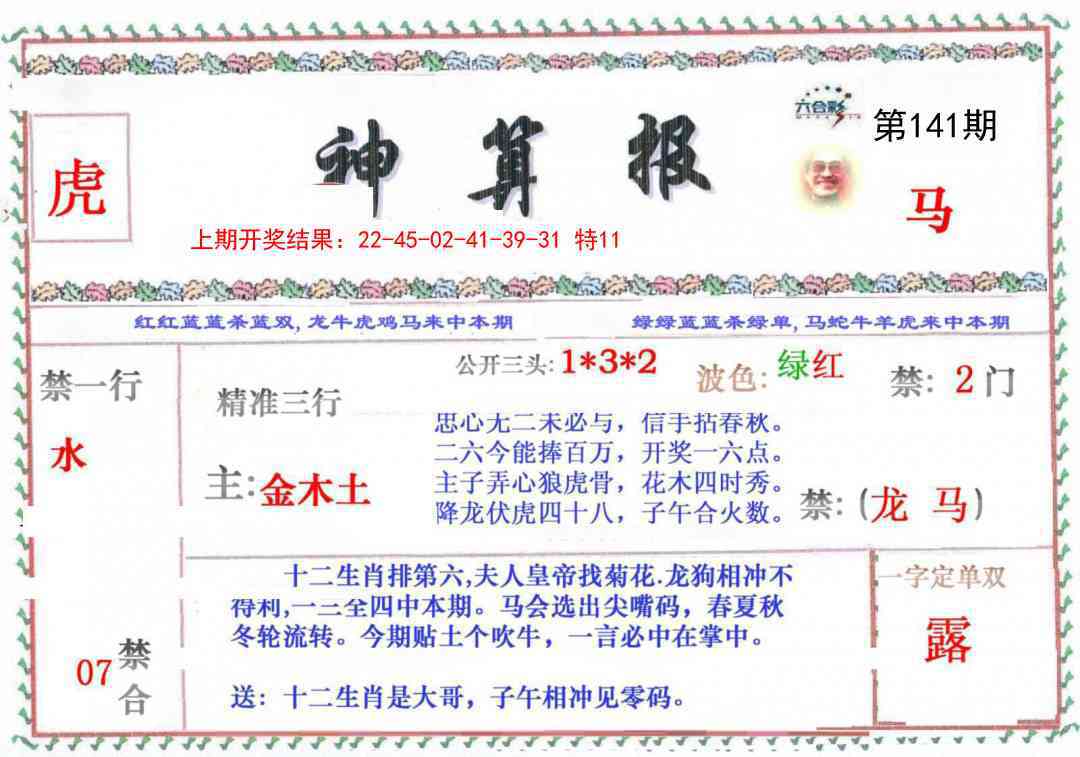 六合彩
第141期
虎
神算报
马
上期开奖结果：22-45-02-41-39-31 特11
红红蓝蓝杀蓝双，龙牛虎鸡马来中本期
绿绿蓝蓝杀绿单，马蛇牛羊虎来中本期
禁一行
水
精准三行
主:金木土
公开三头:1*3*2
波色:绿红
禁:2门
思心无二未必与，信手拈春秋。
二六今能捧百万，开奖一六点。
主子弄心狼虎骨，花木四时秀。
降龙伏虎四十八，子午合火数。
禁:(龙 马)
07
禁合
十二生肖排第六,夫人皇帝找菊花.龙狗相冲不
得利,一三全四中本期。马会选出尖嘴码，春夏秋
冬轮流转。今期贴士个吹牛，一言必中在掌中。
送：十二生肖是大哥，子午相冲见零码。
一字定单双
露